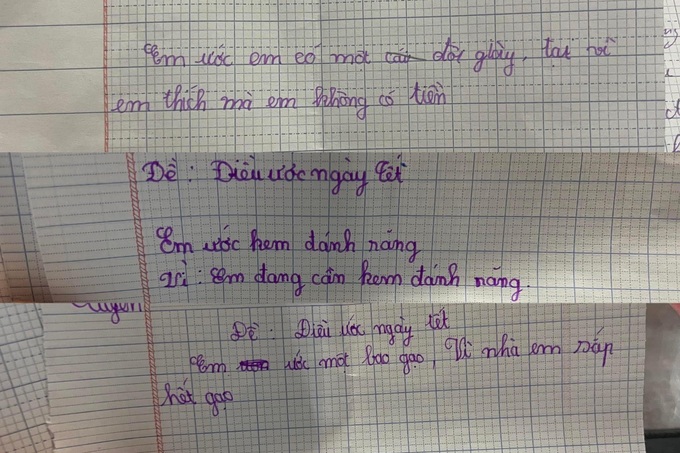 Em ước em có một cái đôi giày, tại vì
em thích mà em không có tiền
Đề : Điều ước ngày Tết
Em ước kem đánh răng
Vì : Em đang cần kem đánh răng.
Đề : Điều ước ngày tết
Em ước một bao gạo, Vì nhà em sắp
hết gạo